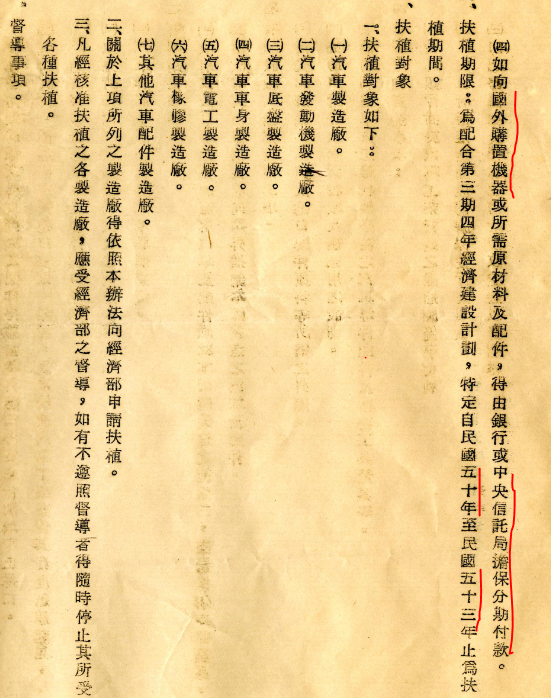 ㈣如向國外購置機器或所需原材料及配件，得由銀行或中央信託局擔保分期付款。
、扶植期限：為配合第三期四年經濟建設計劃，特定自民國五十年至民國五十三年止為扶
植期間。
、扶植對象
一、扶植對象如下：
㈠汽車製造廠。
㈡汽車發動機製造廠。
㈢汽車底盤製造廠。
㈣汽車車身製造廠。
㈤汽車電工製造廠。
㈥汽車橡膠製造廠。
㈦其他汽車配件製造廠。
二、關於上項所列之製造廠得依照本辦法向經濟部申請扶植。
三、凡經核准扶植之各製造廠，應受經濟部之督導，如有不遵照督導者得隨時停止其所受
各種扶植。
、督導事項。